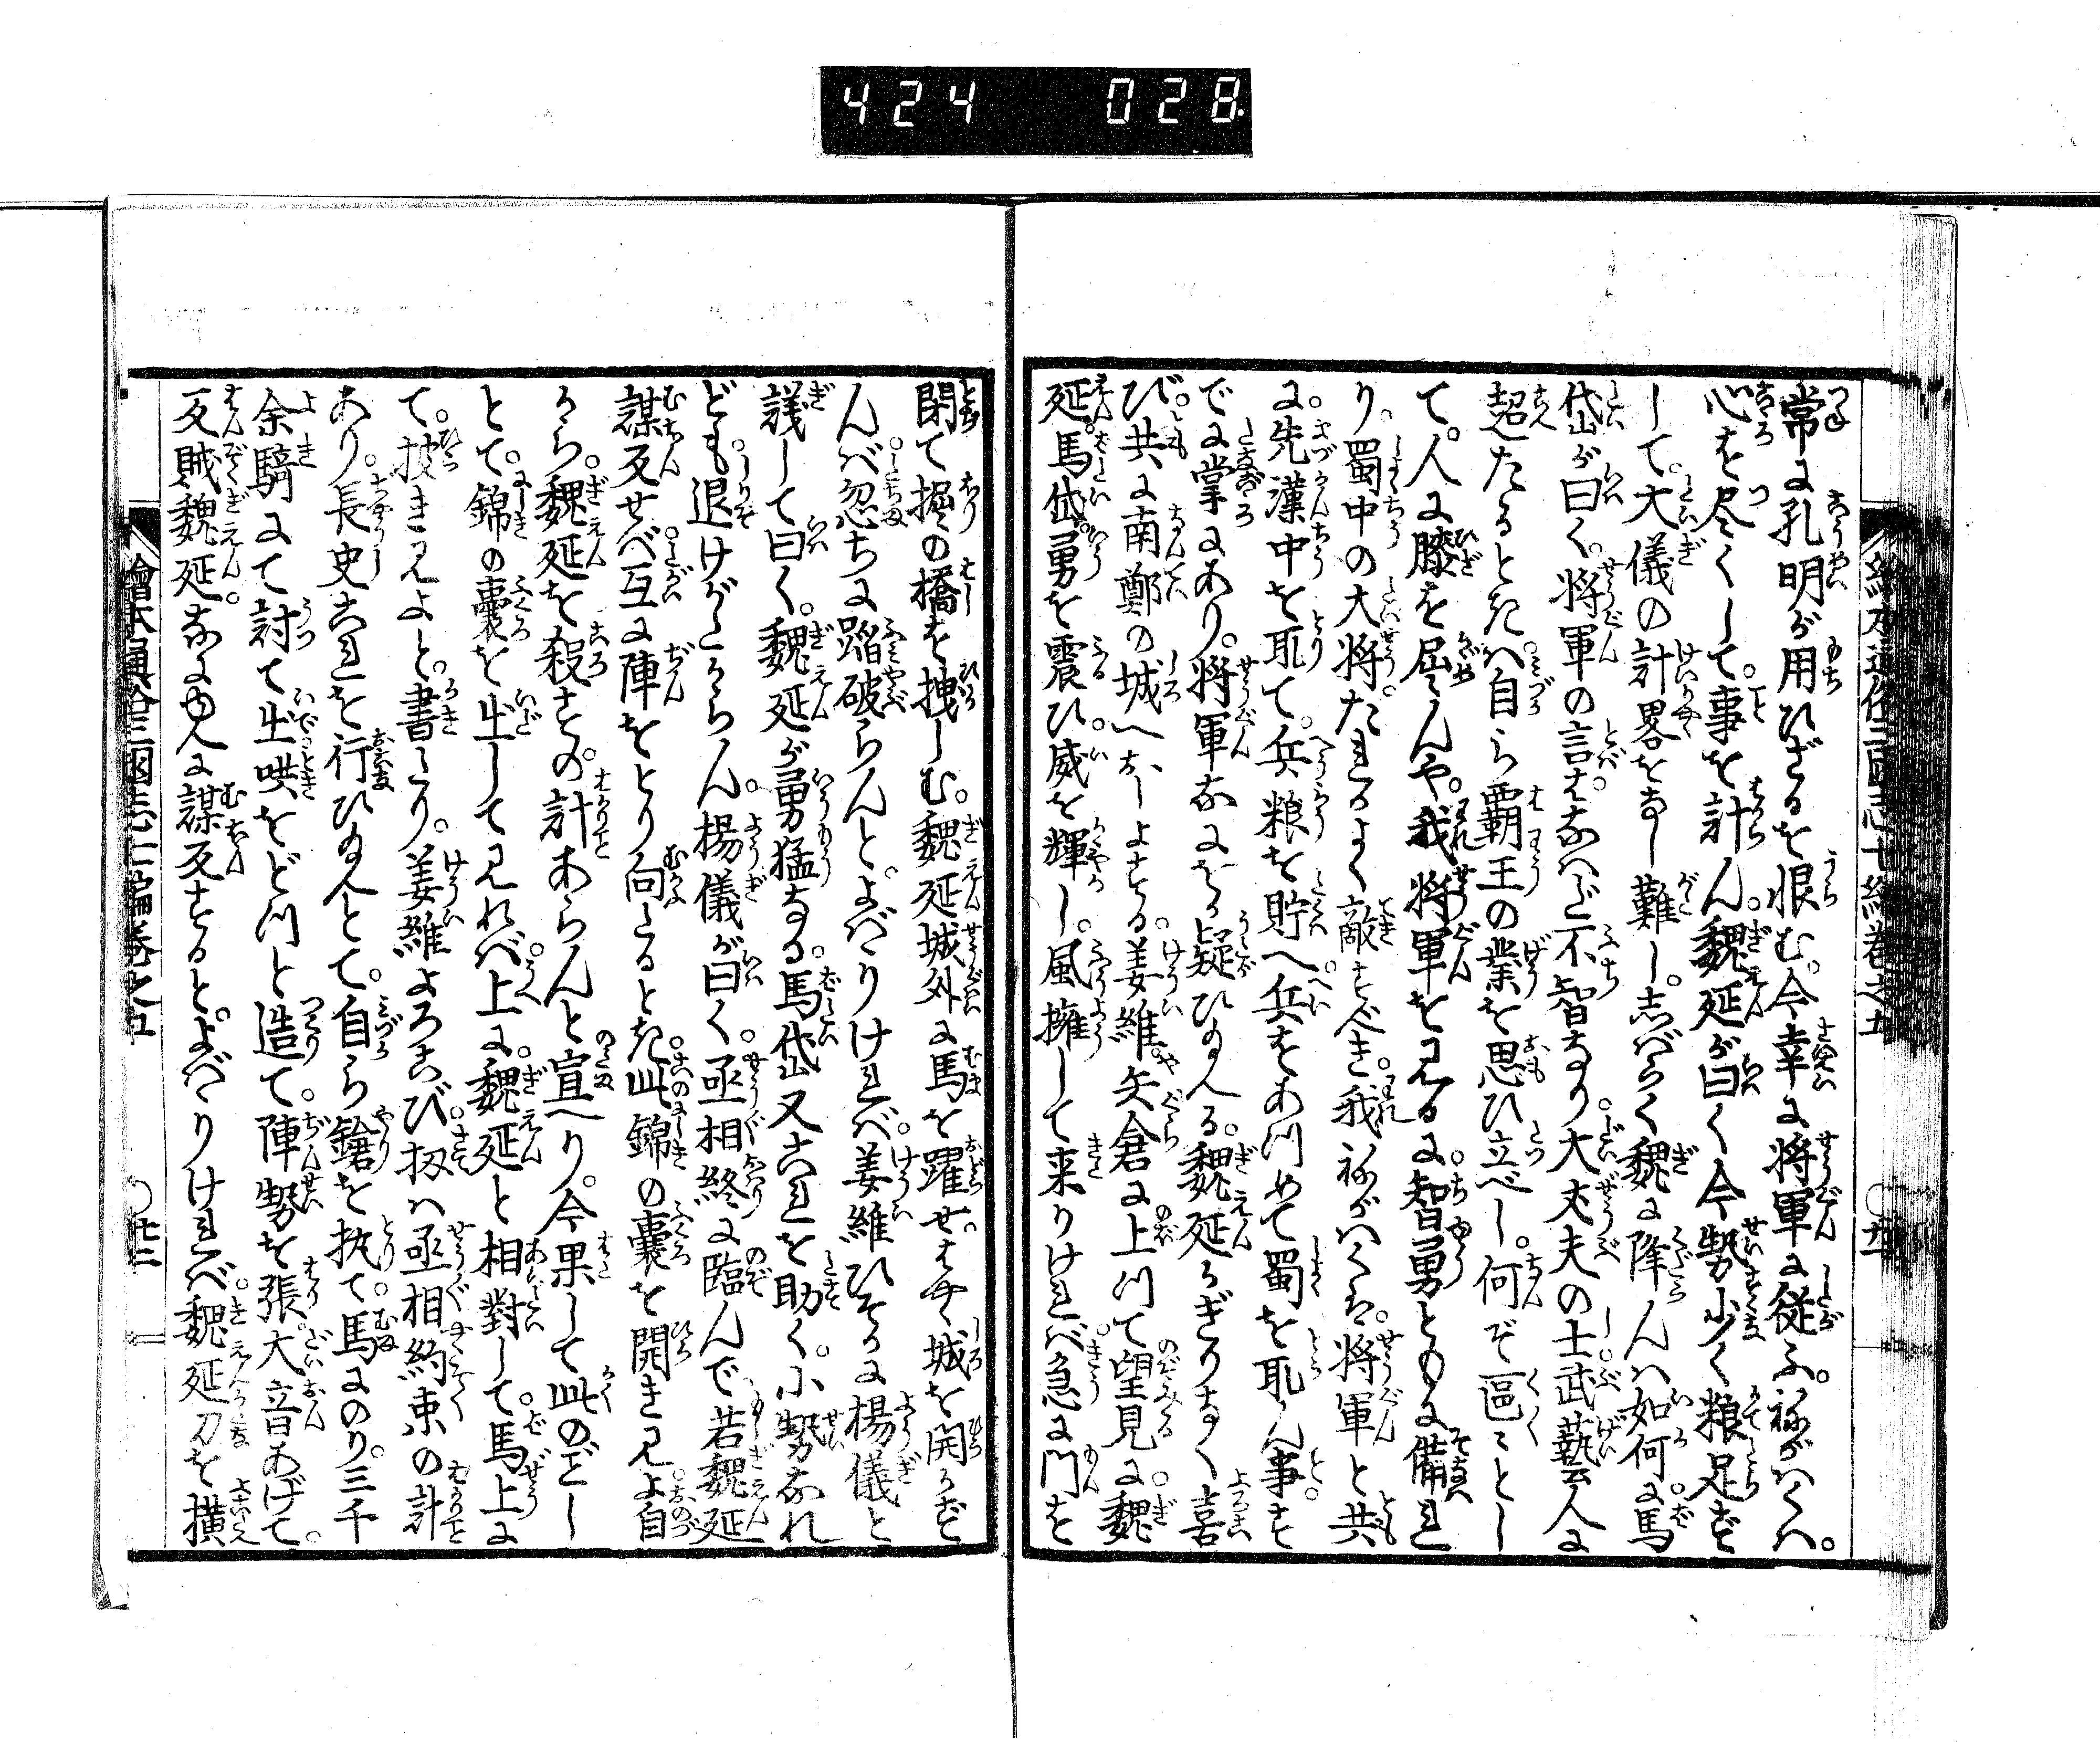 424 028
常に孔明が用ひざるを恨む。今幸に将軍に従ふ。祢がハくハ。
心を尽くして。事を計ん。魏延が曰く今勢少く粮足ず
して。大儀の計畧をなし難し。志バらく魏に降んハ如何。馬
岱が曰く。将軍の言を。なハだ不智なり。大丈夫の士武藝人に
超たるときハ。自ら覇王の業を思ひ立べし。何ぞ區〻とし
て。人に膝を屈んや。我将軍を見るに。智勇ともに備れ
り。蜀中の大将。たれるよく敵すべき。我祢がハくは。将軍と共
に。先漢中を取て。兵粮を貯へ。兵をあつめて蜀を取ん事。す
でに掌にあり。将軍なにをか疑ひ給ん。魏延かぎりなく喜
び。共に南鄭の城へおしよせる。姜維。矢倉に上つて望見に。魏
延。馬岱。勇を震ひ。威を輝し。風擁して来りけれバ。急に門を
閉て掘の橋を拽しむ。魏延城外に馬を躍せ。はやく城を開かず
んバ忽ちに蹈破らんと。よバゝりけれバ。姜維ひそかに楊儀と
議して曰く。魏延が勇猛なる。馬岱又これを助く。小勢なれ
ども。退けがたからん。楊儀が曰く。丞相終に臨んで。若魏延
謀反せバ。互に陣をとり向たるとき。此錦の囊を開き見よ。自
から。魏延を殺すの。計あらんと宣へり。今果して此のごとし
とて。錦の囊を出して見れバ。上に。魏延と相對して。馬上に
て。披き見よと。書たり。姜維よろこび。扨ハ丞相約束の計
あり。長史これを行ひ給へとて。自ら鎗を執て。馬にのり。三千
余騎にて討て出。哄をどつと造て。陣勢を張。大音あげて。
反賊魏延。なにゆへに謀反すると。よバゝりけれバ。魏延刀を横
繪本通俗三國志七編巻之五